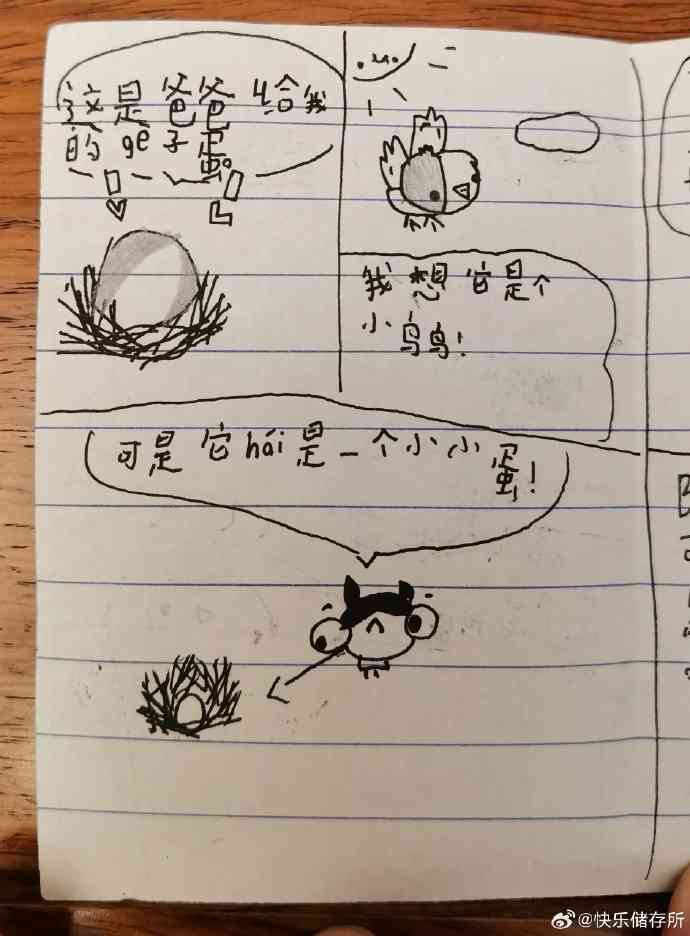 这是爸爸给我
的gē子蛋。
我想它是个
小鸟鸟!
可是它hái是一个小小蛋!
@快乐储存所